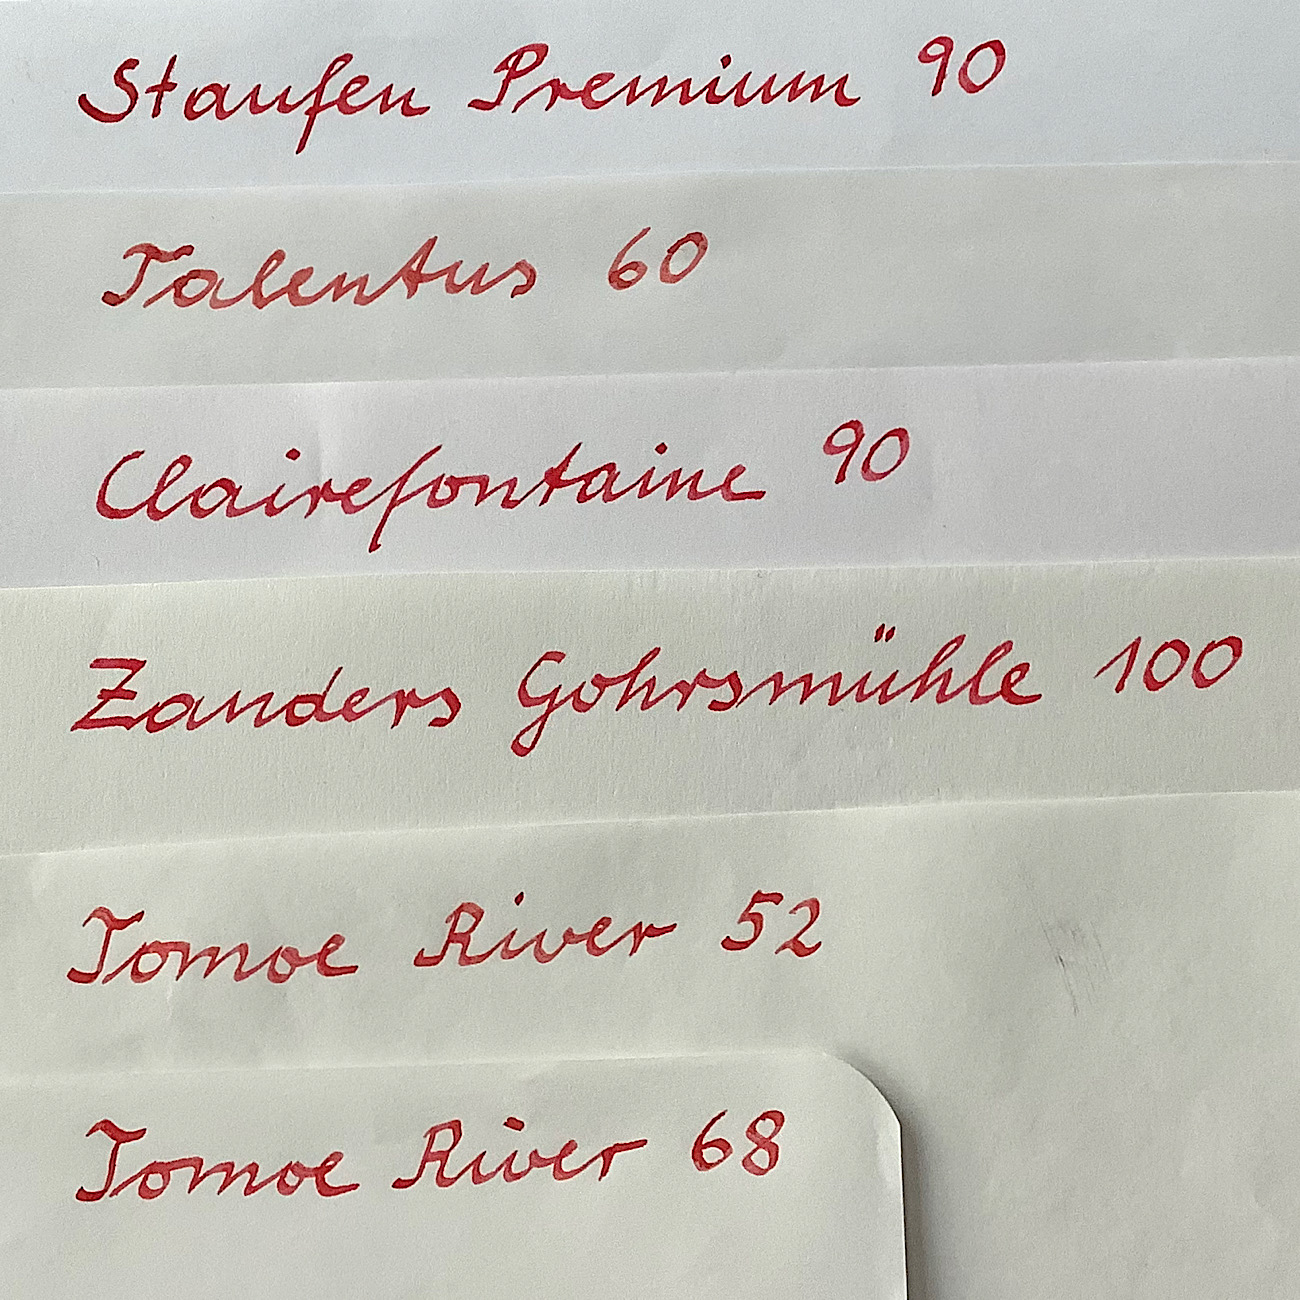 Staufen Premium 90
Talentus 60
Clairefontaine 90
Zanders Gohrsmühle 100
Tomoe River 52
Tomoe River 68